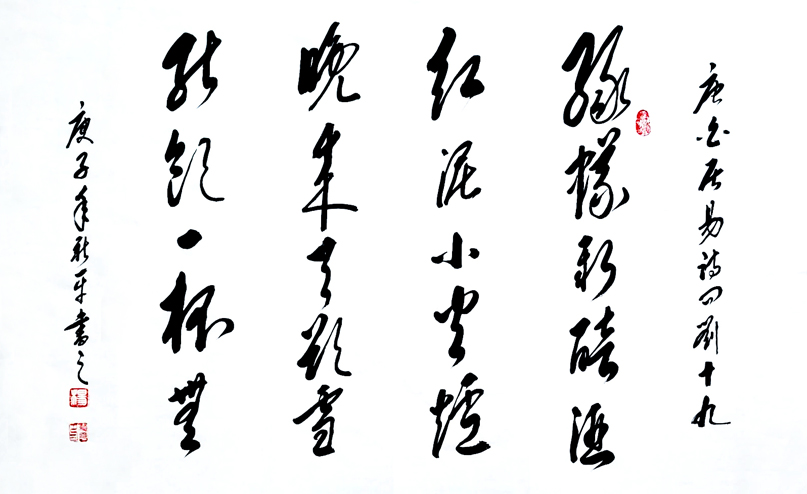 唐白居易詩問劉十九
綠蟻新醅酒
紅泥小火爐
晚來天欲雪
能飲一杯無
庚子年平書之